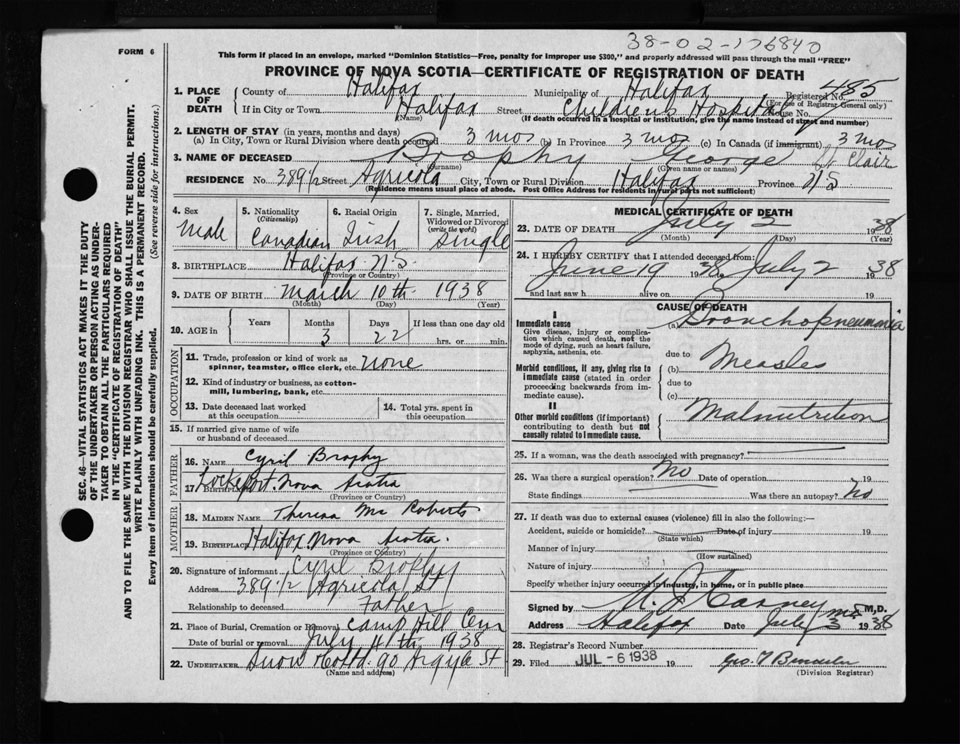 38-02-176840
FORM 6
This form if placed in an envelope, marked "Dominion Statistics—Free, penalty for improper use $300," and properly addressed will pass through the mail "FREE"
PROVINCE OF NOVA SCOTIA—CERTIFICATE OF REGISTRATION OF DEATH
1. PLACE OF DEATH
County of Halifax Municipality of Halifax Registered No. 485
(For use of Registrar General only)
If in City or Town Halifax Street Children's Hospital House No.
(Name) (If death occurred in a hospital or institution, give the name instead of street and number)
2. LENGTH OF STAY (in years, months and days)
(a) In City, Town or Rural Division where death occurred 3 mos (b) In Province 3 mos (c) In Canada (if immigrant) 3 mos
3. NAME OF DECEASED Brophy George St Clair
(Surname) (Given name or names)
RESIDENCE No. 389 1/2 Street Agricola City, Town or Rural Division Halifax Province N.S.
(Residence means usual place of abode. Post Office Address for residents in rural parts not sufficient)
4. Sex Male
5. Nationality (Citizenship) Canadian
6. Racial Origin Irish
7. Single, Married, Widowed or Divorced (write the word) Single
8. BIRTHPLACE Halifax N.S.
(Province or Country)
9. DATE OF BIRTH March 10th 1938
(Month) (Day) (Year)
10. AGE in Years Months 3 Days 22 If less than one day old
hrs. or min.
OCCUPATION
11. Trade, profession or kind of work as spinner, teamster, office clerk, etc. none
12. Kind of industry or business, as cotton-mill, lumbering, bank, etc.
13. Date deceased last worked at this occupation
14. Total yrs. spent in this occupation
15. If married give name of wife or husband of deceased
FATHER
16. NAME Cyril Brophy
17. BIRTHPLACE Lockeport. Nova Scotia
(Province or Country)
MOTHER
18. MAIDEN NAME Theresa Mc Roberts
19. BIRTHPLACE Halifax Nova Scotia.
(Province or Country)
20. Signature of informant Cyril Brophy
Address 389 1/2 Agricola St
Relationship to deceased Father
21. Place of Burial, Cremation or Removal Camp Hill Cem
Date of burial or removal July 4th 1938
22. UNDERTAKER Snow & Co Ltd. 90 Argyle St
(Name and address)
MEDICAL CERTIFICATE OF DEATH
23. DATE OF DEATH July 2 1938
(Month) (Day) (Year)
24. I HEREBY CERTIFY that I attended deceased from:
June 19 1938 to July 2 1938
and last saw h alive on 19
CAUSE OF DEATH
I
Immediate cause
Give disease, injury or complication which caused death, not the mode of dying, such as heart failure, asphyxia, asthenia, etc.
(a) Bronchopneumonia
due to
Morbid conditions, if any, giving rise to immediate cause (stated in order proceeding backwards from immediate cause).
(b) Measles
due to
(c)
II
Other morbid conditions (if important) contributing to death but not causally related to immediate cause.
Malnutrition
25. If a woman, was the death associated with pregnancy?
26. Was there a surgical operation? No Date of operation 19
State findings Was there an autopsy? No
27. If death was due to external causes (violence) fill in also the following:—
Accident, suicide or homicide? Date of injury 19
(State which)
Manner of injury
(How sustained)
Nature of injury
Specify whether injury occurred in industry, in home, or in public place
Signed by Carney M.D.
Address Halifax Date July 3 1938
28. Registrar's Record Number
29. Filed JUL -6 1938 19
(Division Registrar)
SEC. 46—VITAL STATISTICS ACT MAKES IT THE DUTY
OF THE UNDERTAKER OR PERSON ACTING AS UNDER-
TAKER TO OBTAIN ALL THE PARTICULARS REQUIRED
IN THE "CERTIFICATE OF REGISTRATION OF DEATH"
AND TO FILE THE SAME WITH THE DIVISION REGISTRAR WHO SHALL ISSUE THE BURIAL PERMIT.
WRITE PLAINLY WITH UNFADING INK. THIS IS A PERMANENT RECORD.
Every item of information should be carefully supplied. (See reverse side for instructions.)